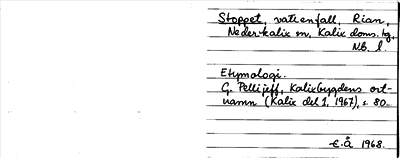 Stoppet, vattenfall, Rian,
Nederkalix sn, Kalix doms.tg,
NB. l.
Etymologi.
G. Pellijeff, Kalixbygdens ort-
namn (Kalix del 1, 1967), s. 80.
E.Å 1968.